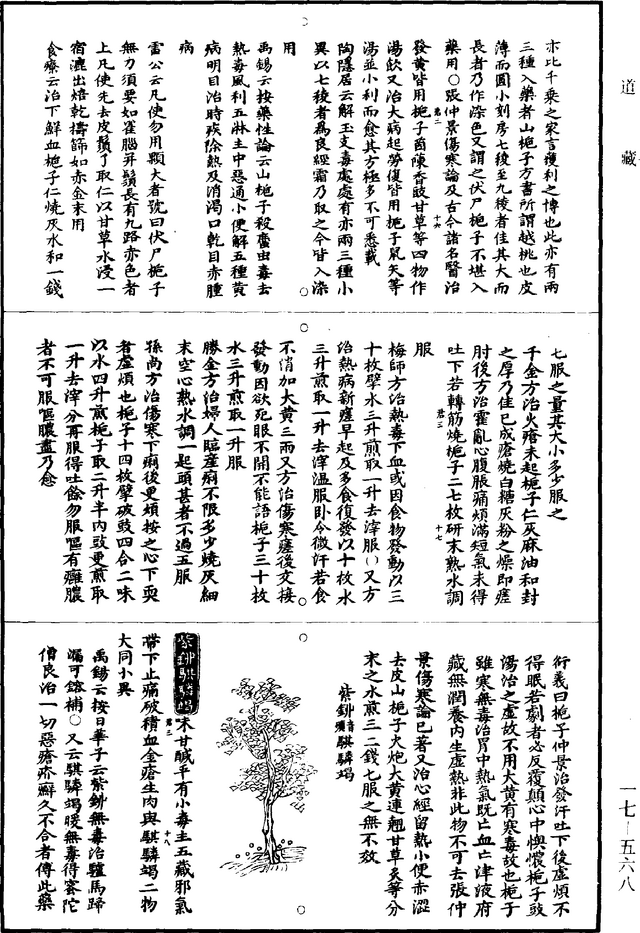 道藏
亦比千乘之家言獲利之博也此亦有兩
三種入藥者山梔子方書所謂越桃也皮
薄而圓小刻房七稜至九稜者佳其大而
長者乃作染色又謂之伏尸梔子不堪入
藥用○張仲景傷寒論及古今諸名醫治
發黃皆用梔子茵陳香豉甘草等四物作
湯飲又治大病起勞復皆用梔子鼠矢等
湯並小利而愈其方極多不可悉載
陶隱居云解玉支毒處處有亦兩三種小
異以七稜者為良經霜乃取之今皆入染
用
禹錫云按藥性論云山梔子殺䗪蟲毒去
熱毒風利五淋主中惡通小便解五種黃
病明目治時疾除熱及消渴口乾目赤腫
病
雷公云凡使勿用顆大者號曰伏尸梔子
無力須要如雀腦并鬚長有九路赤色者
上凡使先去皮鬚了取仁以甘草水浸一
宿漉出焙乾擣篩如赤金末用
食療云治下鮮血梔子仁燒灰水和一錢
七服之量其大小多少服之
千金方治火瘡未起梔子仁灰麻油和封
之厚乃佳已成瘡燒白糖灰粉之燥即瘥
肘後方治霍亂心腹脹痛煩滿短氣未得
吐下若轉筋燒梔子二七枚研末熟水調
服
梅師方治熱毒下血或因食物發動以三
十枚擘水三升煎取一升去滓服○又方
治熱病新瘥早起及多食復發以十枚水
三升煎取一升去滓溫服臥令微汗若食
不消加大黃三兩又方治傷寒瘥後交接
發動因欲死眼不開不能語梔子三十枚
水三升煎取一升服
勝金方治婦人臨產痢不限多少燒灰細
末空心熱水調一匙頭甚者不過五服
孫尚方治傷寒下痢後更煩按之心下耎
者虛煩也梔子十四枚擘破豉四合二味
以水四升煎梔子取二升半內豉更煎取
一升去滓分再服得吐餘勿服嘔有癰膿
者不可服嘔膿盡乃愈
衍義曰梔子仲景治發汗吐下後虛煩不
得眠若劇者必反覆顛心中懊憹梔子豉
湯治之虛故不用大黃有寒毒故也梔子
雖寒無毒治胃中熱氣既亡血亡津液府
藏無潤養內生虛熱非此物不可去張仲
景傷寒論已著又治心經留熱小便赤澀
去皮山梔子火炮大黃連翹甘草炙等分
末之水煎三二錢七服之無不效
紫鉚騏驎竭
紫鉚騏驎竭
味甘鹹平有小毒主五藏邪氣
帶下止痛破積血金瘡生肉與騏驎竭二物
大同小異
禹錫云按日華子云紫鉚無毒治驢馬蹄
漏可鎔補○又云騏驎竭暖無毒得蜜陀
僧良治一切惡瘡疥癬久不合者傅此藥
一七—五六八